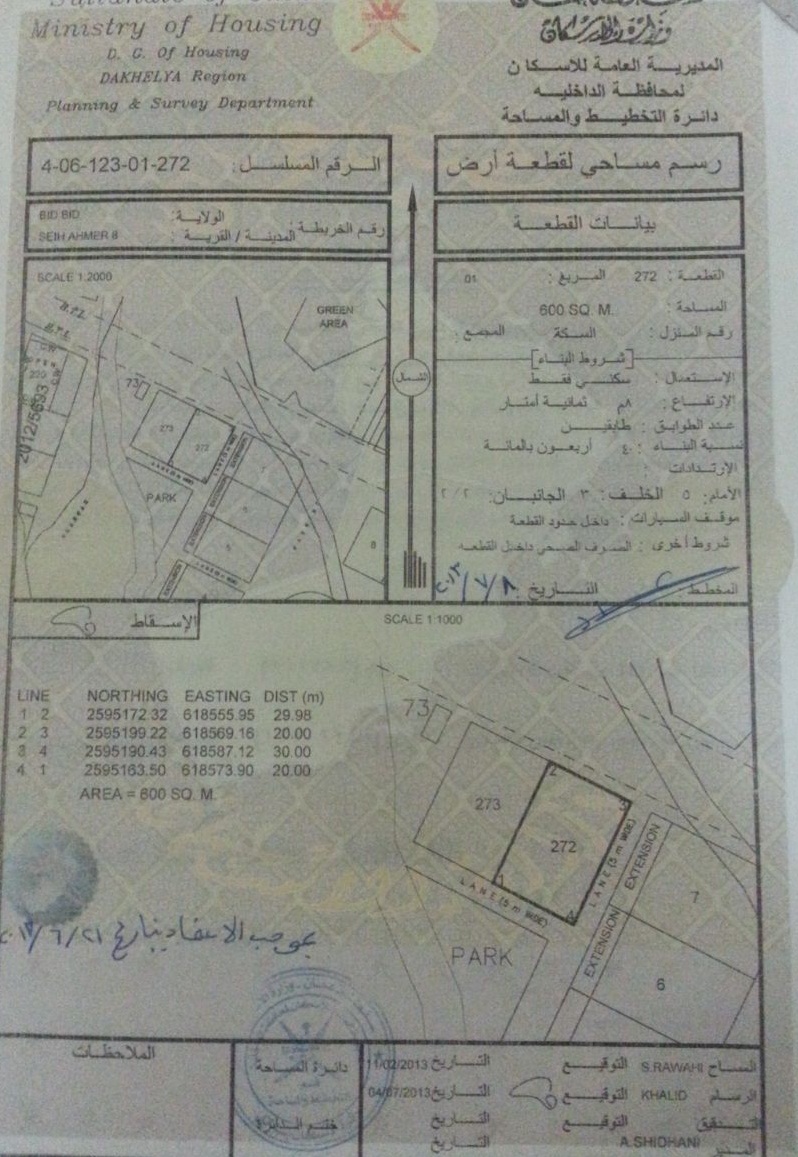 Ministry of Housing
D. G. Of Housing
DAKHELYA Region
Planning & Survey Department
وزارة الإسكان
المديرية العامة للاسكان
لمحافظة الداخليه
دائرة التخطيط والمساحة
رسم مساحي لقطعة أرض
الرقم المسلسل: 4-06-123-01-272
بيانات القطعة
الولاية: BID BID
رقم الخريطة
المدينة / القرية : SEIH AHMER 8
القطعة : 272 المربع : 01
المساحة : 600 SQ. M.
رقم المنزل : السكة المجمع :
[شروط البناء]
الإستعمال : سكني فقط
الإرتفاع : ٨م ثمانية أمتار
عدد الطوابق : طابقين
نسبة البناء : ٤٠ أربعون بالمائة
الإرتدادات :
الأمام: ٥ الخلف: ٣ الجانبان: ٢/٢
موقف السيارات : داخل حدود القطعة
شروط أخرى : الصرف الصحي داخل القطعه
المخطط : التاريخ : ٢٠١٣/٧/٨
الشمال
SCALE 1:2000
GREEN AREA
B.P.L
B.P.L
G.W
OPEN
220
G.W
2012/5693
73
273
272
LANE (5 m WIDE)
LANE (5 m WIDE)
EXTENSION
EXTENSION
EXTENSION
EXTENSION
PARK
7
6
5
8
الإسقاط
SCALE 1:1000
LINE NORTHING EASTING DIST (m)
1 2 2595172.32 618555.95 29.98
2 3 2595199.22 618569.16 20.00
3 4 2595190.43 618587.12 30.00
4 1 2595163.50 618573.90 20.00
AREA = 600 SQ. M.
73
273
272
1
2
3
4
LANE (5 m WIDE)
LANE (5 m WIDE)
EXTENSION
EXTENSION
PARK
7
6
بموجب الاعتماد بتاريخ ٢٠١٣/٦/٢١
الملاحظات
دائرة المساحة
ختم الدائرة
المساح S.RAWAHI التوقيع التاريخ 11/02/2013
الرسام KHALID التوقيع التاريخ 04/07/2013
التدقيق التوقيع التاريخ
المدير A.SHIDHANI التاريخ